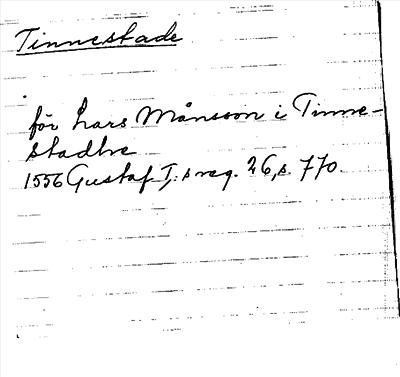 Tinnestade
för Lars Månsson i Tinne-
stadhe
1556 Gustaf I:s reg. 26, s. 770.